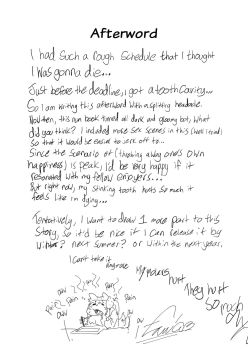 Afterword
I had such a rough schedule that I thought
I was gonna die...
Just before the deadline, i got a tooth cavity...
So I am writing this afterword with a splitting headache.
this nun book turned all dark and gloomy but, What
did you think? I included more sex scenes in this (well I tried)
so that it would be easier to jerk off to...
Since the scenario of (throwing away one's own
happiness) is peak, I'd be very happy if it
resonated with my fellow enjoyers...
But right now, my stinking tooth hurts so much it
feels like im dying...
Tentatively, I want to draw 1 more part to this
story, so it'd be nice if I can release it by
winter? next summer? or within the next year.
I can't take it
anymore
My molars
hurt
They hurt
so much
Pain
Pain
ow
ow